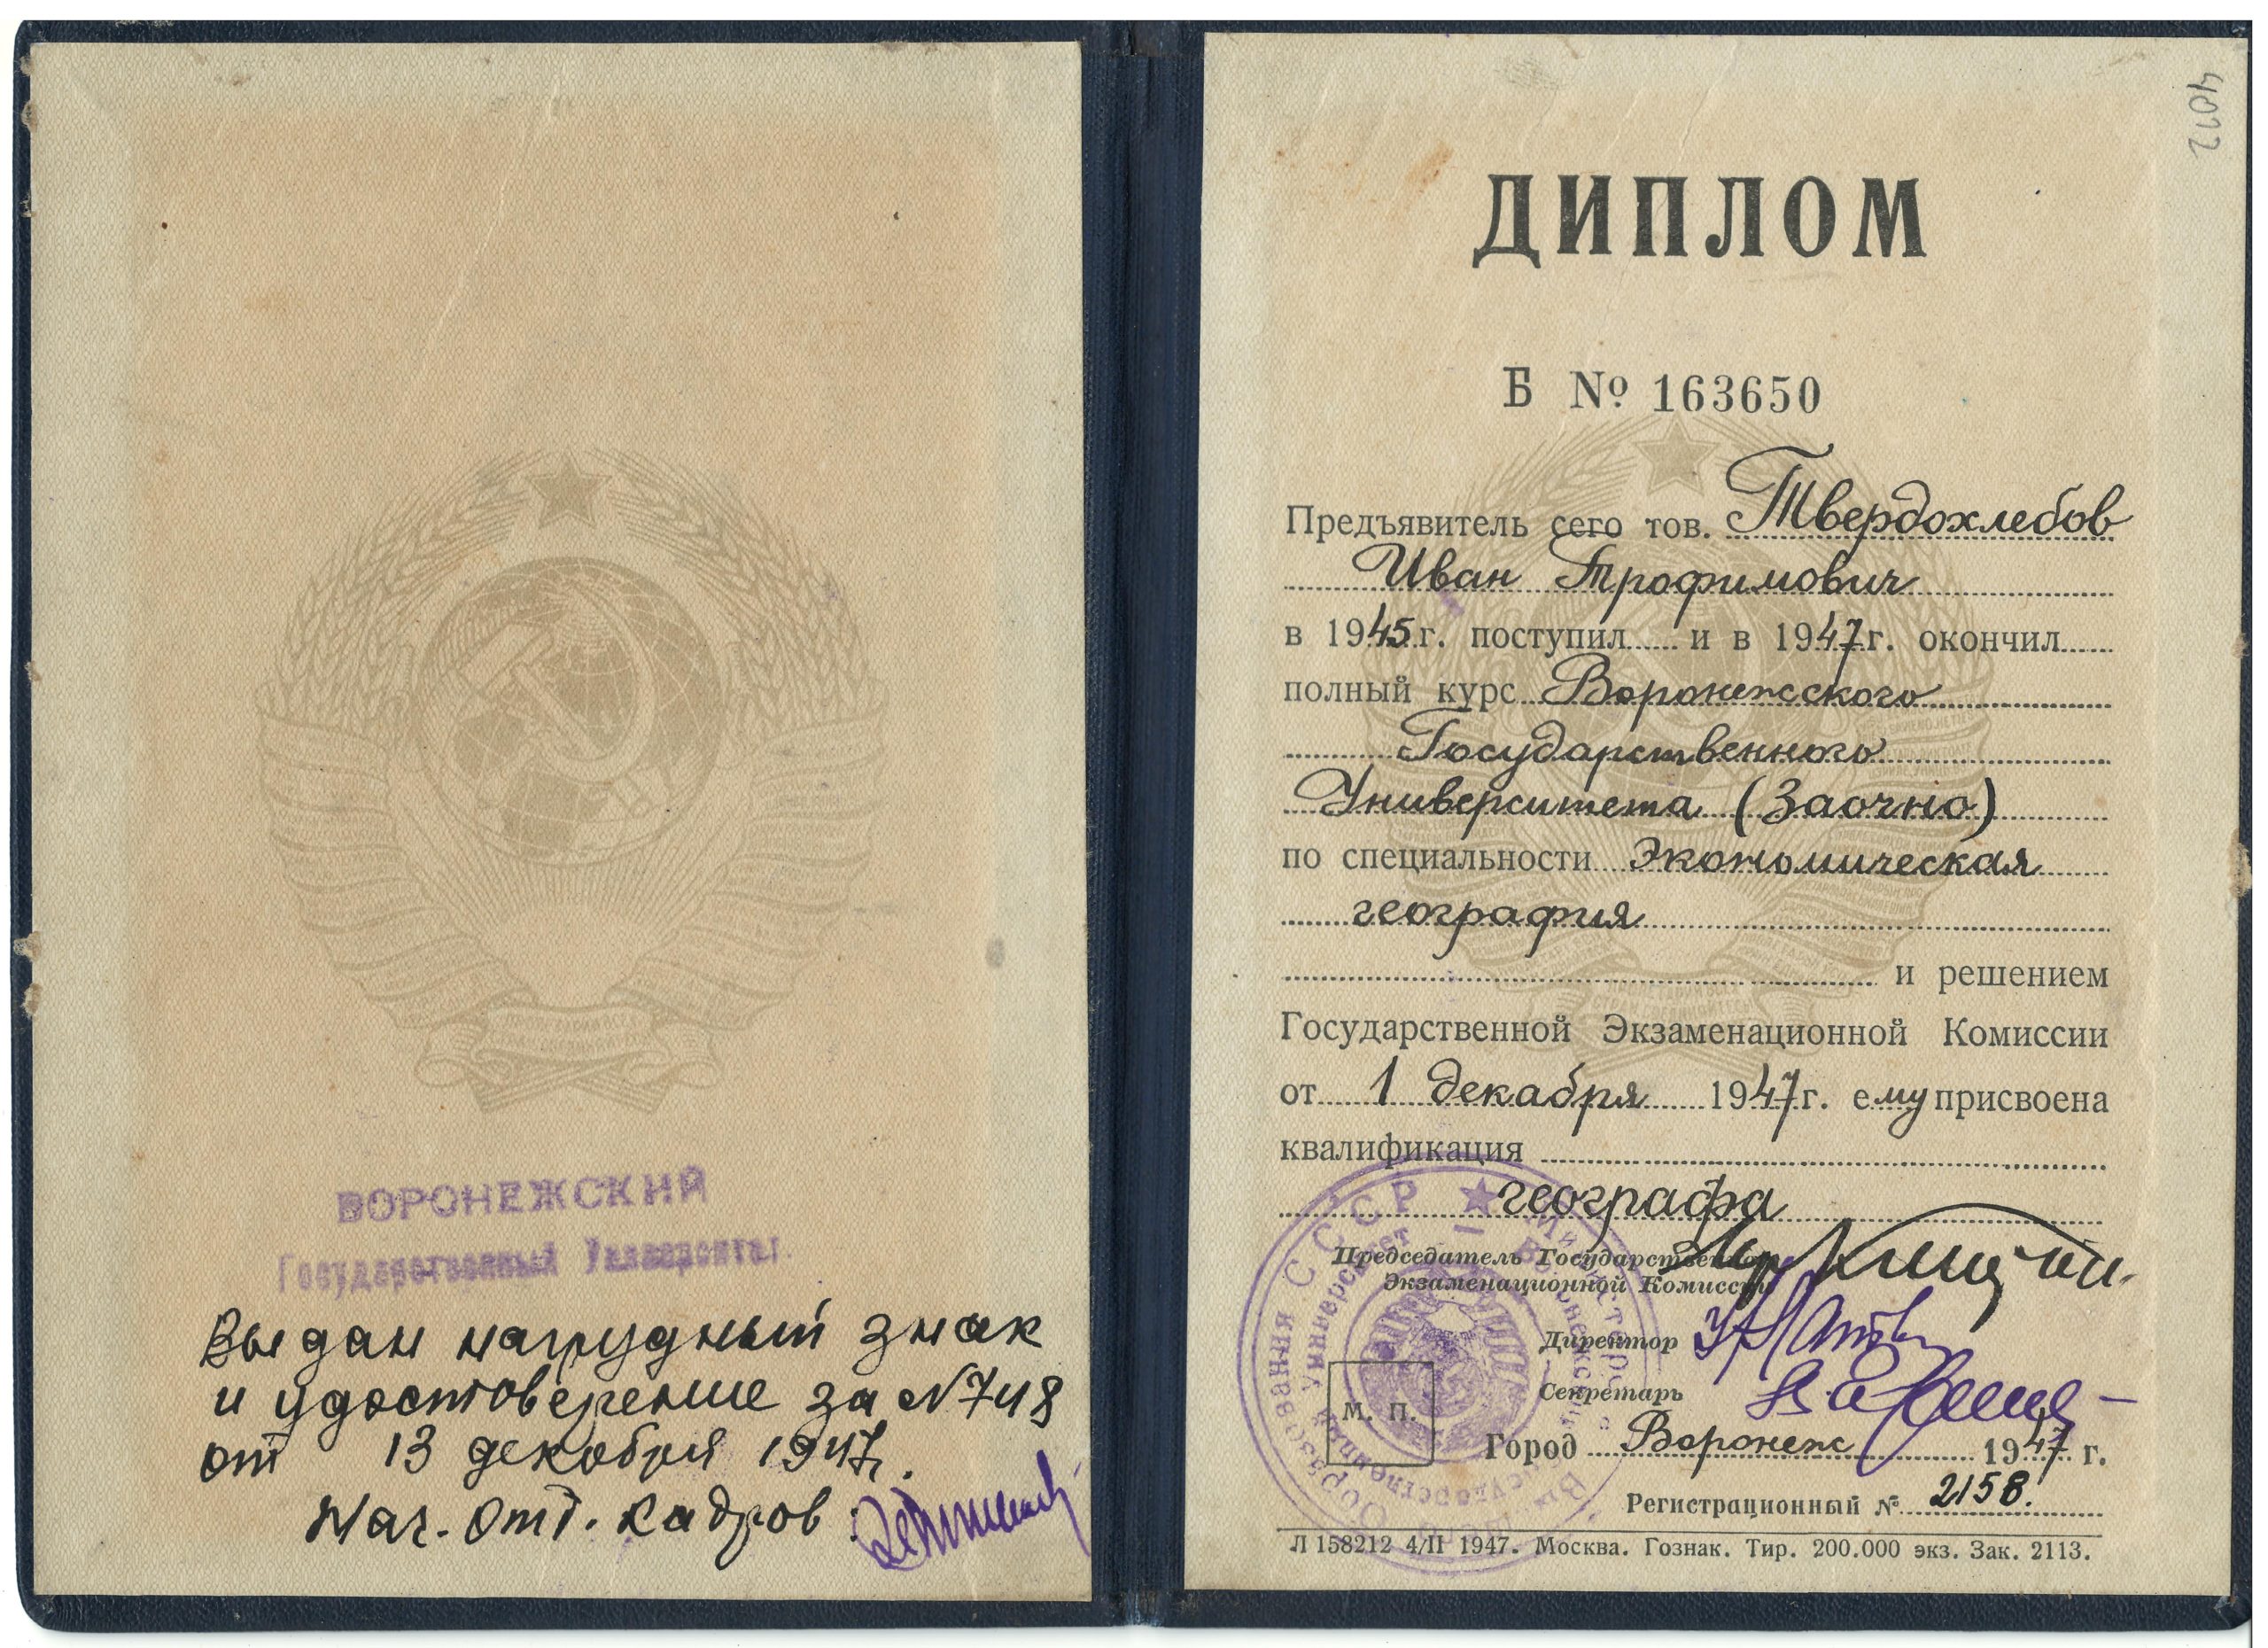 ВОРОНЕЖСКИЙ
Государственный Университет.
Выдан нагрудный знак
и удостоверение за №748
от 13 декабря 1947г.
Нач. отд. кадров
4022
ДИПЛОМ
Б № 163650
Предъявитель сего тов. Твердохлебов
Иван Трофимович
в 1945 г. поступил и в 1947 г. окончил
полный курс Воронежского
Государственного
Университета (Заочно)
по специальности Экономическая
география
и решением
Государственной Экзаменационной Комиссии
от 1 декабря 1947 г. ему присвоена
квалификация
географа
Председатель Государственной
Экзаменационной Комиссии
Директор
Секретарь
М. П.
Город Воронеж 1947 г.
Регистрационный № 2158.
Л 158212 4/II 1947. Москва. Гознак. Тир. 200.000 экз. Зак. 2113.